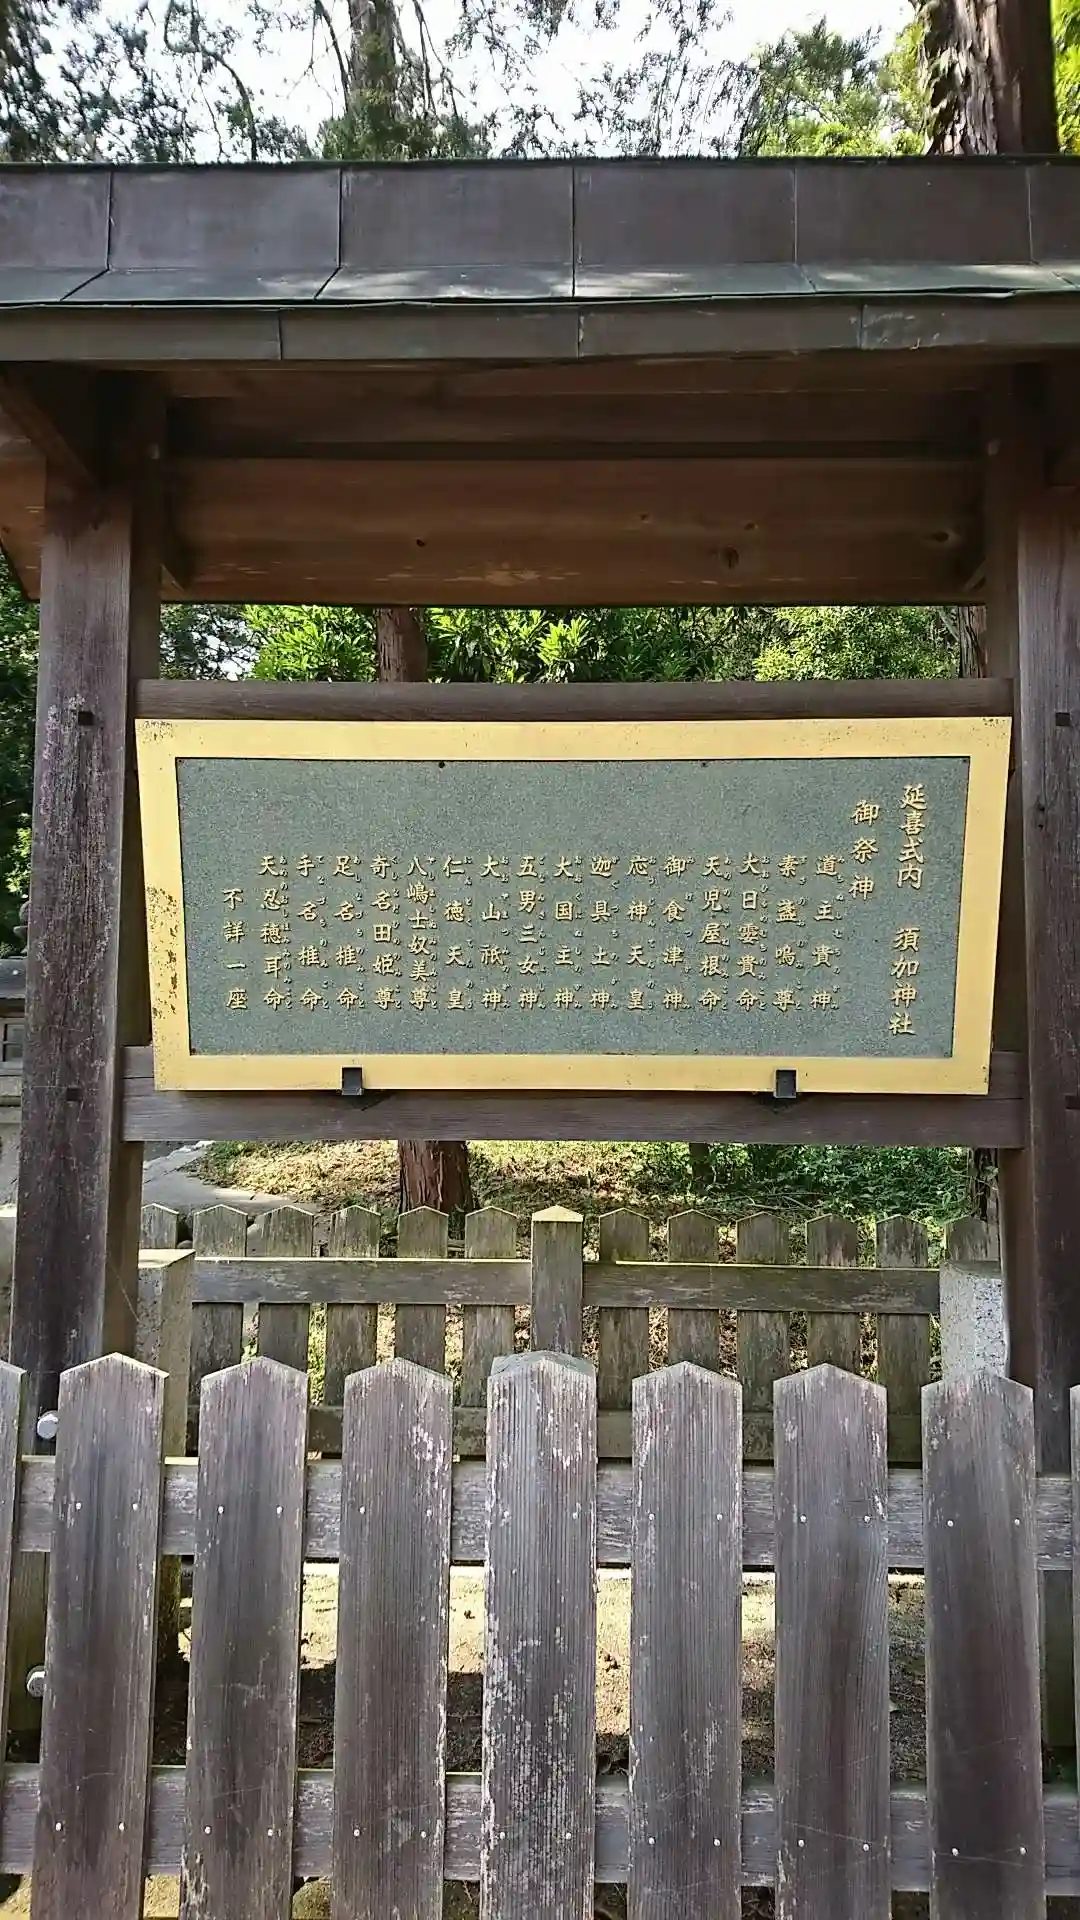 延喜式内 須加神社
御祭神
道主貴神
素盞嗚尊
大日孁貴命
天児屋根命
御食津神
応神天皇
迦具土神
大国主神
五男三女神
大山祇神
仁徳天皇
八嶋士奴美尊
奇名田姫尊
足名椎命
手名椎命
天忍穂耳命
不詳一座